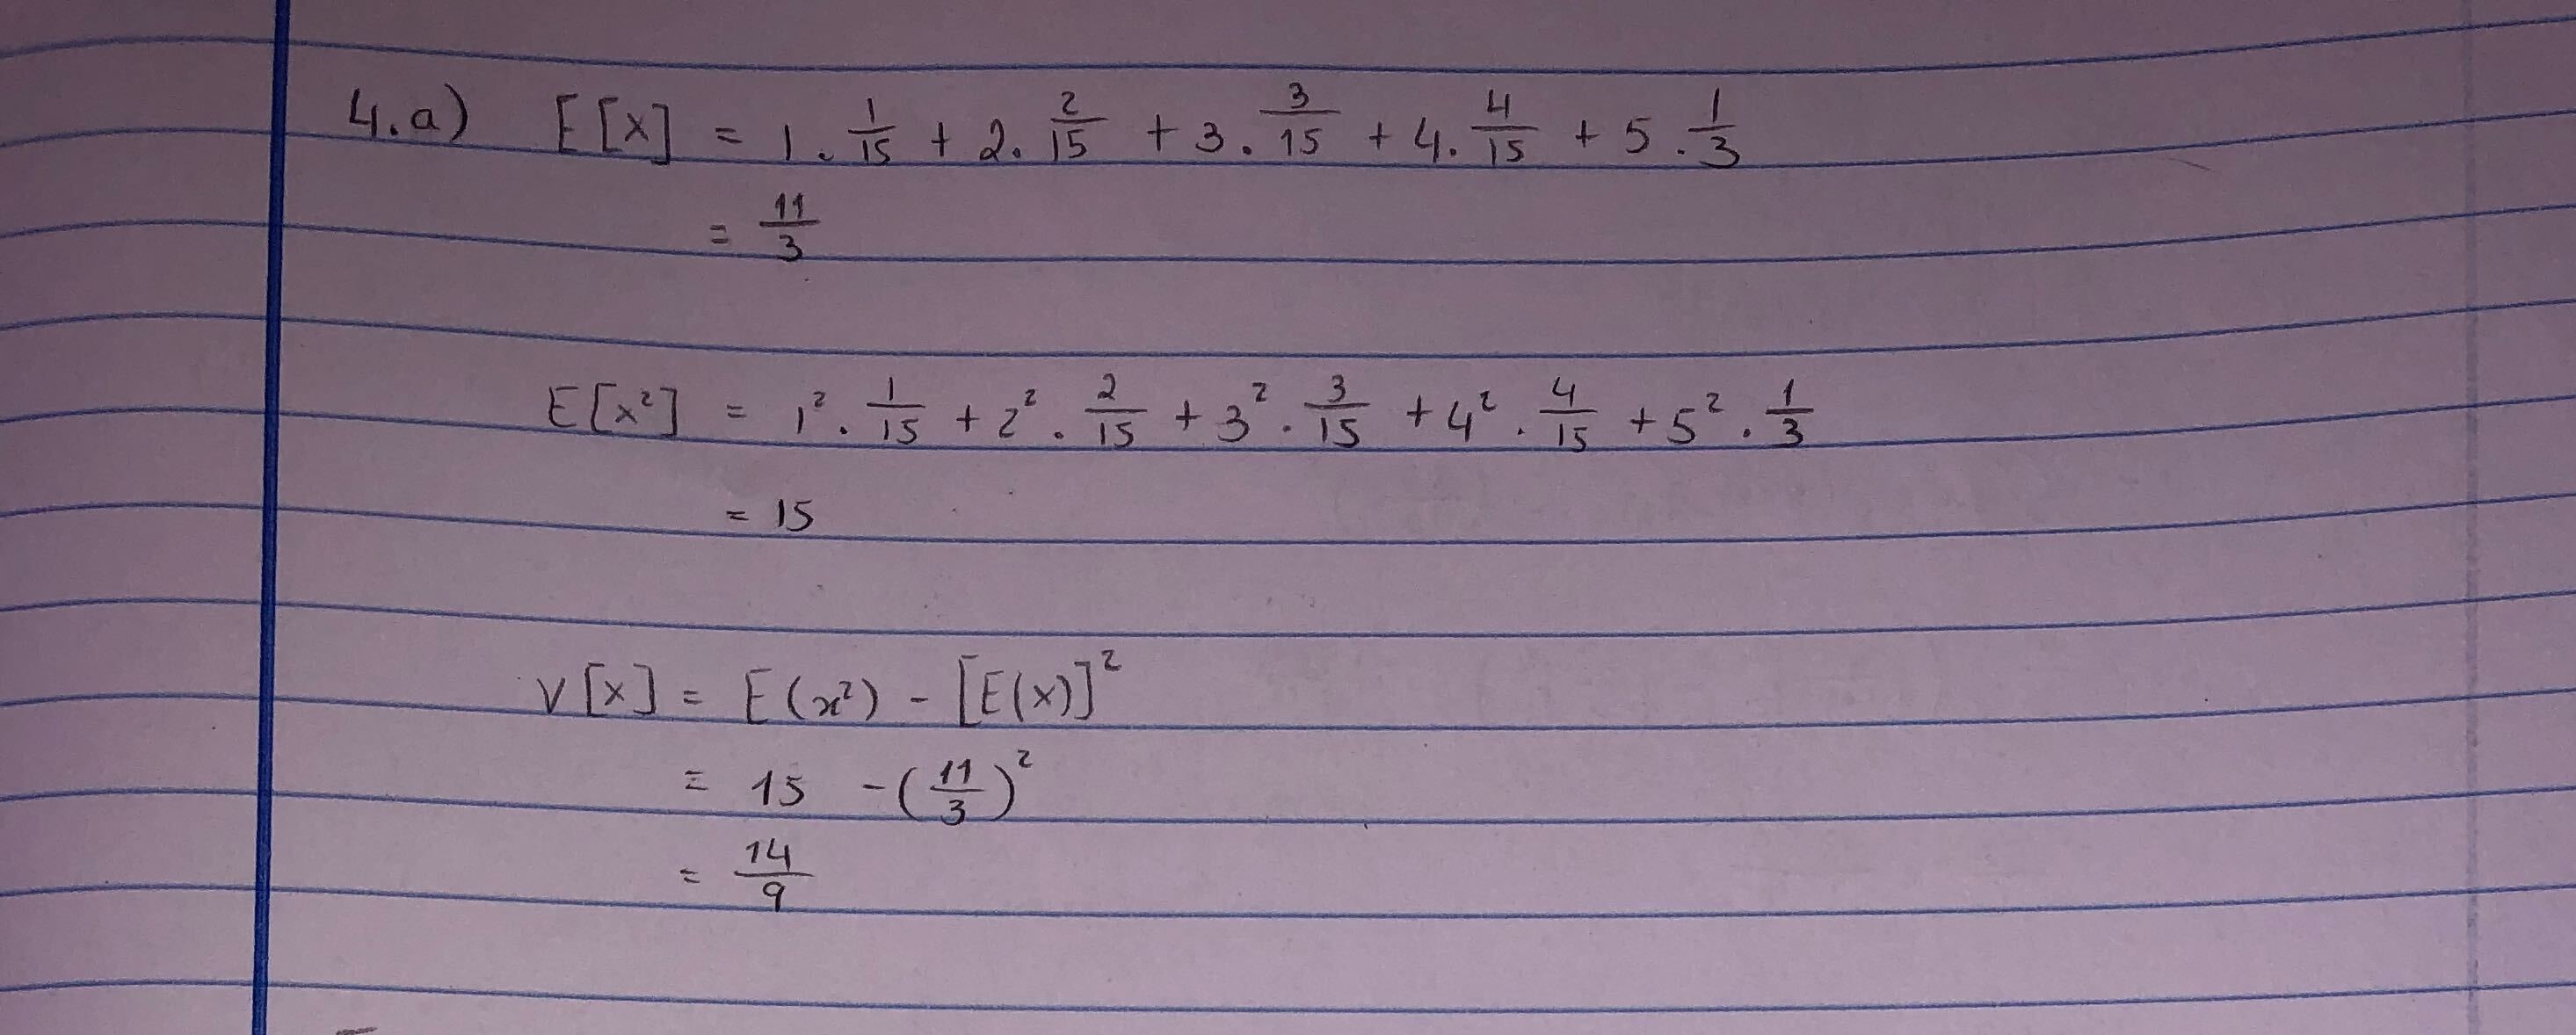 4.a) E[X] = 1 . 1/15 + 2 . 2/15 + 3 . 3/15 + 4 . 4/15 + 5 . 1/3
= 11/3
E[X²] = 1² . 1/15 + 2² . 2/15 + 3² . 3/15 + 4² . 4/15 + 5² . 1/3
= 15
V[X] = E(x²) - [E(X)]²
= 15 - (11/3)²
= 14/9